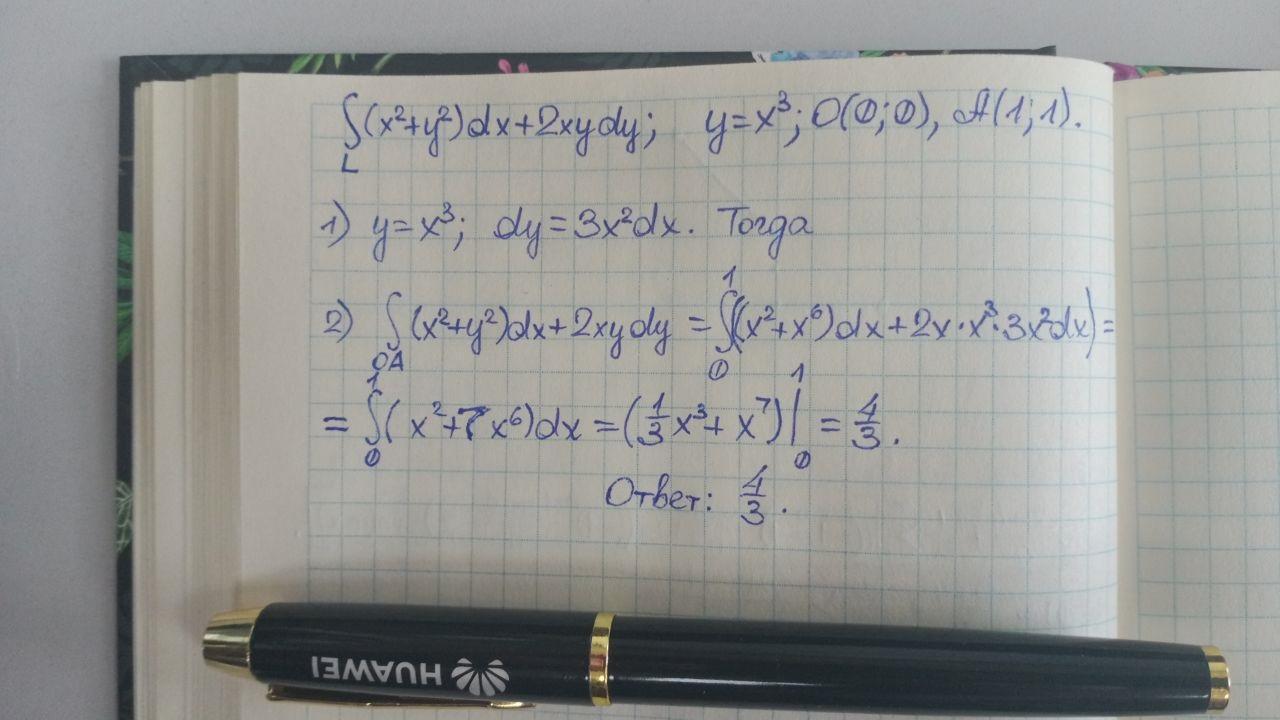 ∫(x²+y²)dx+2xydy; y=x³; O(0;0), A(1;1).
L
1) y=x³; dy=3x²dx. Тогда
2) ∫_OA (x²+y²)dx+2xydy = ∫₀¹((x²+x⁶)dx+2x·x³·3x²dx)=
= ∫₀¹(x²+7x⁶)dx = (1/3 x³+x⁷)|₀¹ = 4/3.
Ответ: 4/3.
HUAWEI